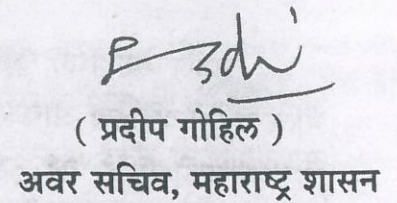 ( प्रदीप गोहिल )
अवर सचिव, महाराष्ट्र शासन